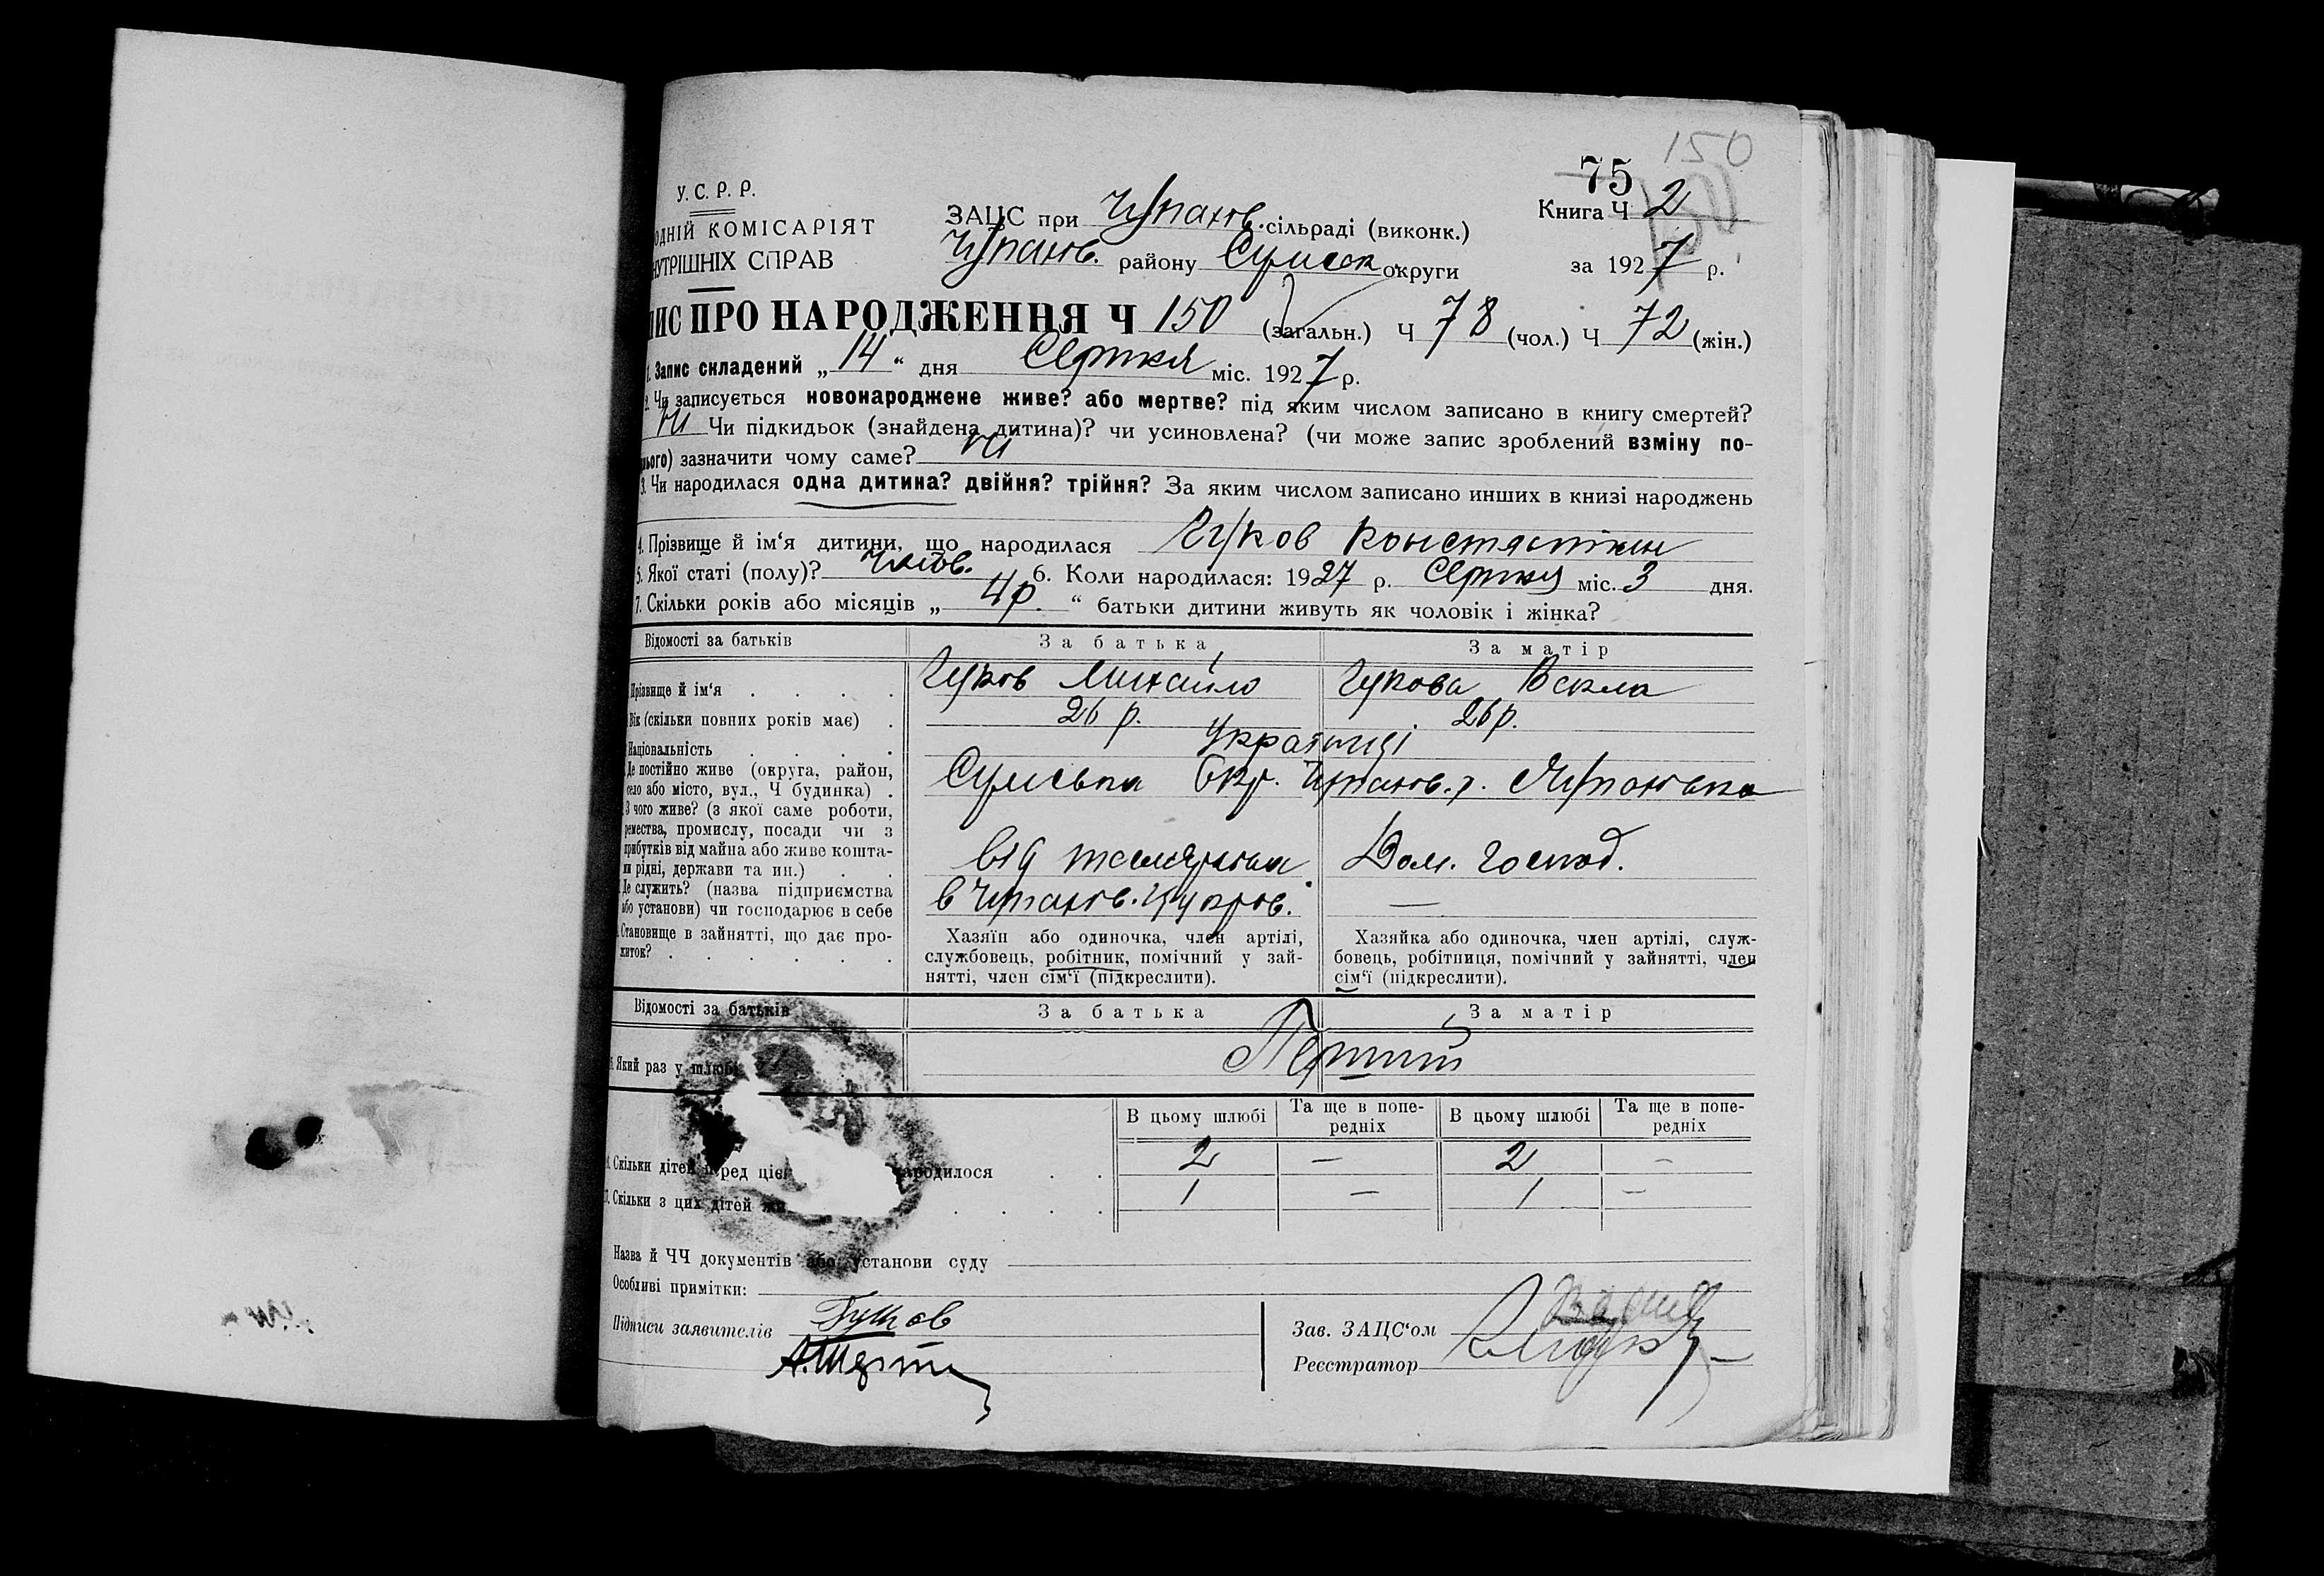 150
75
У. С. Р. Р.
ОДНІЙ КОМІСАРІЯТ
НУТРІШНІХ СПРАВ
ЗАЦС при Чупахов. сільраді (виконк.)
Чупахов. району Сумськ округи
Книга Ч 2
за 1927 р.
ИС ПРО НАРОДЖЕННЯ Ч 150 (загальн.) Ч 78 (чол.) Ч 72 (жін.)
1. Запис складений „ 14 “ дня Серпня міс. 1927 р.
2. Чи записується новонароджене живе? або мертве? під яким числом записано в книгу смертей?
ні Чи підкидьок (знайдена дитина)? чи усиновлена? (чи може запис зроблений взміну по-
нього) зазначити чому саме? ні
3. Чи народилася одна дитина? двійня? трійня? За яким числом записано инших в книзі народжень
4. Прізвище й ім‘я дитини, що народилася Гуков Константин
5. Якої статі (полу)? Чолов. 6. Коли народилася: 1927 р. Серпня міс. 3 дня.
7. Скільки років або місяців „ 4 р. “ батьки дитини живуть як чоловік і жінка?
Відомості за батьків За батька За матір
Прізвище й ім‘я . . . . Гуков Михайло Гукова Векла
Вік (скільки повних років має) . 26 р. 26 р.
Національність . . . . Українці
Де постійно живе (округа, район,
село або місто, вул., Ч будинка) . Сумська Окр. Чупахов. р. Чупахівка
З чого живе? (з якої саме роботи,
ремества, промислу, посади чи з
прибутків від майна або живе кошта-
ми рідні, держави та ин.) . . від Дом. господ.
Де служить? (назва підприємства
або установи) чи господарює в себе в Чупахов. цукров. —
Становище в зайнятті, що дає про-
житок? . . . . . .
Хазяїн або одиночка, член артілі,
службовець, робітник, помічний у зай-
нятті, член сім‘ї (підкреслити).
Хазяйка або одиночка, член артілі, служ-
бовець, робітниця, помічний у зайнятті, член
сім‘ї (підкреслити).
Відомості за батьків За батька За матір
Який раз у шлюбі Перший
В цьому шлюбі Та ще в попе-редніх В цьому шлюбі Та ще в попе-редніх
Скільки дітей перед ціє народилося . . 2 — 2 —
17. Скільки з цих дітей жи . . . . 1 — 1 —
Назва й ЧЧ документів або установи суду
Особливі примітки:
Підписи заявителів Гуков
Зав. ЗАЦС‘ом
Реєстратор